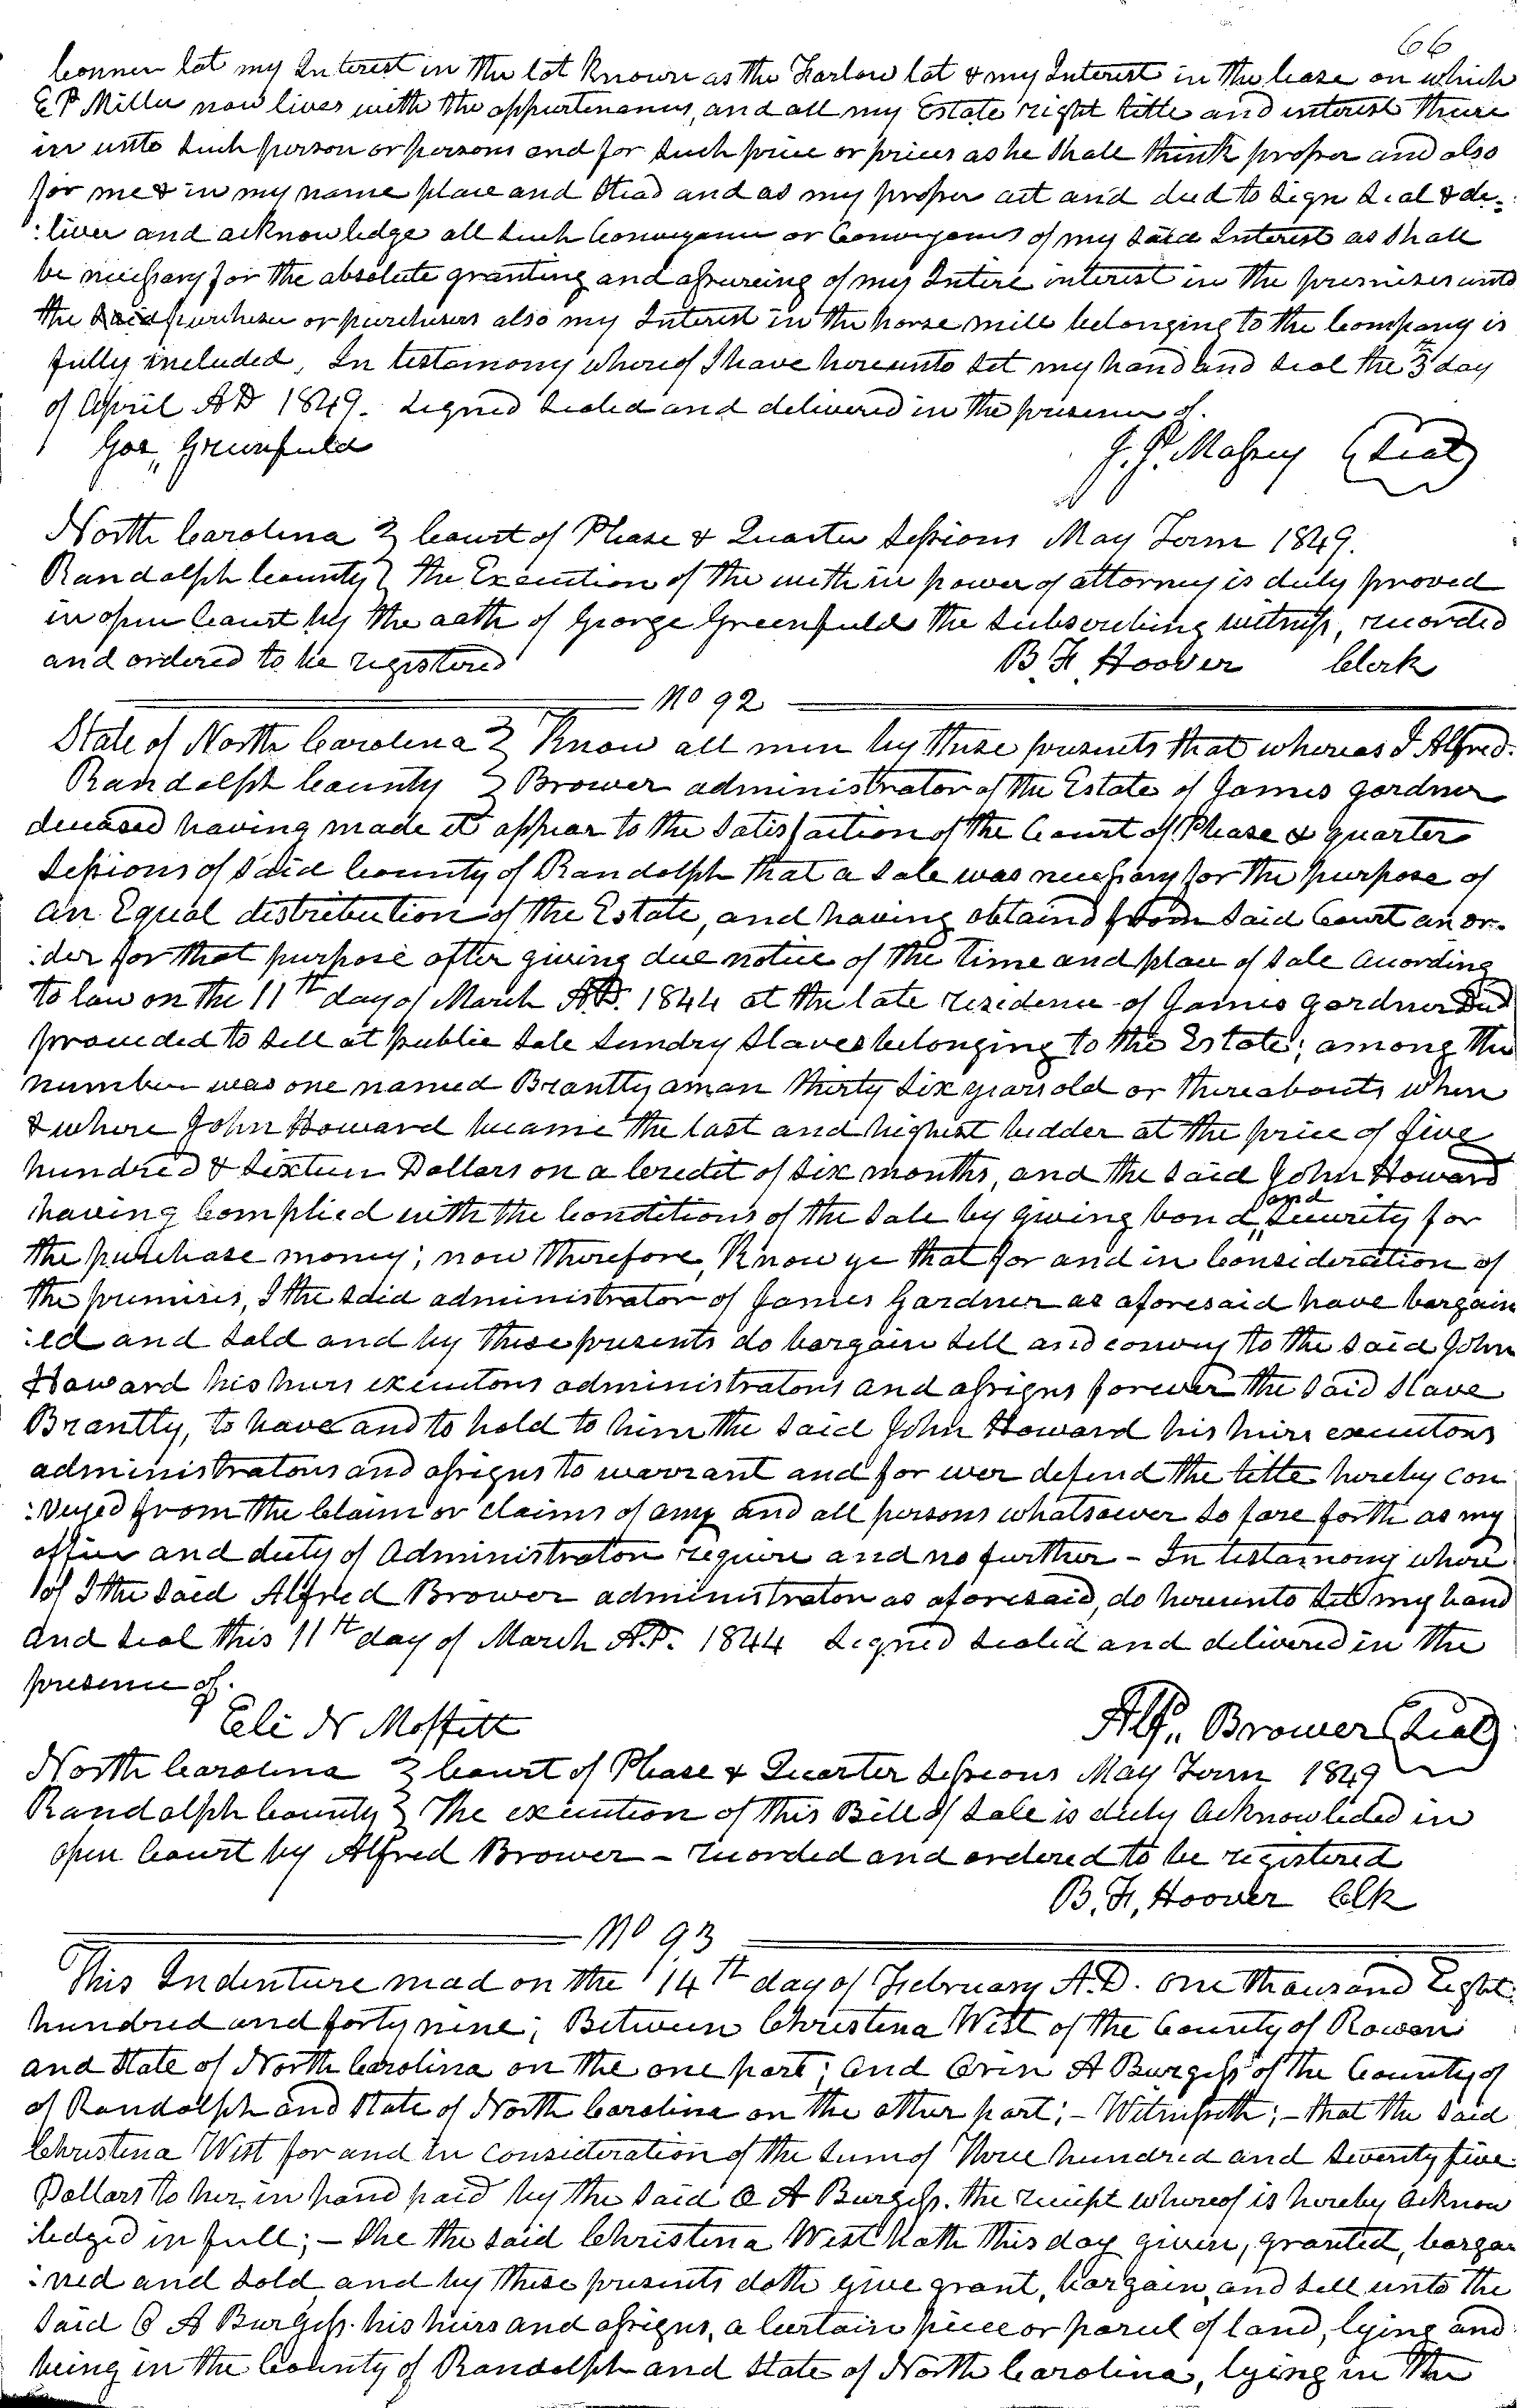 66
Conner lot my Interest in the lot Known as the Farlow lot & my Interest in the lease on which
E P Miller now lives with the appurtenances, and all my Estate right title and interest there
in unto such person or persons and for such price or prices as he shall think proper and also
for me & in my name place and stead and as my proper act and deed to sign seal & de=
:liver and acknowledge all such Conveyance or Conveyances of my said Interest as shall
be necessary for the absolute granting and assureing of my Intire interest in the premises unto
the said purchaser or purchasers also my Interest in the horse mill belonging to the Company is
fully included, In testamony whereof I have hereunto set my hand and seal the 3 day
of April AD 1849. Signed sealed and delivered in the presence of.
Geo,, Greenfield J. P. Massey (Seal)
North Carolina } Court of Please & Quarter Sessions May Term 1849.
Randolph County } The Execution of the with in power of attorney is duly proved
in open Court by the oath of George Greenfield the subscribing witness, recorded
and ordered to be registered B. F. Hoover Clerk
No 92
State of North Carolina } Know all men by these presents that whereas I Alfred
Randolph County } Brower administrator of the Estate of James gardner
deceased having made it appear to the satisfaction of the Court of Please & quarter
Sessions of said County of Randolph that a sale was necessary for the purpose of
an Equal distribution of the Estate, and having obtaind from said Court an or-
:der for that purpose after giving due notice of the time and place of sale according
to law on the 11th day of March A.D. 1844 at the late residence of James gardner Decd
proceeded to sell at public sale sundry slaves belonging to the Estate; among the
number was one named Brantly a man thirty six years old or thereabouts when
& where John Howard became the last and highest bidder at the price of five
hundred & sixteen Dollars on a Credit of six months, and the said John Howard
having Complied with the Conditions of the sale by giving bond and security for
the purchase money; now therefore, Know ye that for and in Consideration of
the premises, I the said administrator of James Gardner as aforesaid have bargain
:ed and sold and by these presents do bargain sell and convey to the said John
Howard his heirs executors administrators and assigns forever the said slave
Brantly, to have and to hold to him the said John Howard his heirs executors
administrators and assigns to warrant and for ever defend the title hereby con
:veyed from the Claim or claims of any and all persons whatsoever so fare forth as my
office and duty of Administrator require and no further - In testamony where
of I the said Alfred Brower administrator as aforesaid, do hereunto set my hand
and seal this 11th day of March A.D. 1844 Signed sealed and delivered in the
presence of.
Eli N Moffitt Alf,, Brower (Seal)
North Carolina } Court of Please & Quarter Sessions May Term 1849
Randolph County } The execution of this Bill of Sale is duly Acknowleded in
open Court by Alfred Brower - recorded and ordered to be registered
B. F. Hoover Clk
No 93
This Indenture mad on the 14th day of February A.D. One thousand Eight
hundred and forty nine; Between Christena West of the County of Rowan
and State of North Carolina on the one part; and Orin A Burgess of the County of
of Randolph and State of North Carolina on the other part; - Witnesseth; - that the said
Christena West for and in consideration of the sum of Three hundred and seventy five
Dollars to her in hand paid by the said O A Burgess. the receipt whereof is hereby Acknow
:ledged in full; - She the said Christena West hath this day given, granted, bargai
:ned and sold and by these presents doth give grant, bargain, and sell unto the
said O A Burgess. his heirs and assigns, a Curtain piece or parcel of land, lying and
being in the County of Randolph and State of North Carolina, lying in the